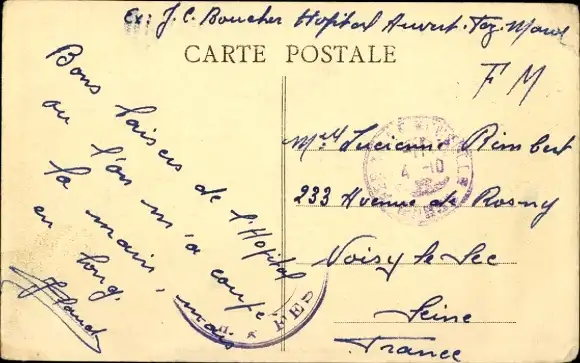 Ex: J. C. Boucher Hopital Auvert. Fez. Maroc
CARTE POSTALE
F M
Bons baisers de l'Hopital
ou l'on m'a coupé
la main, mais
en long.
Melle Lucienne Rimbert
233 Avenue de Rosny
Noisy le Sec
Seine
France
4 -10
FES